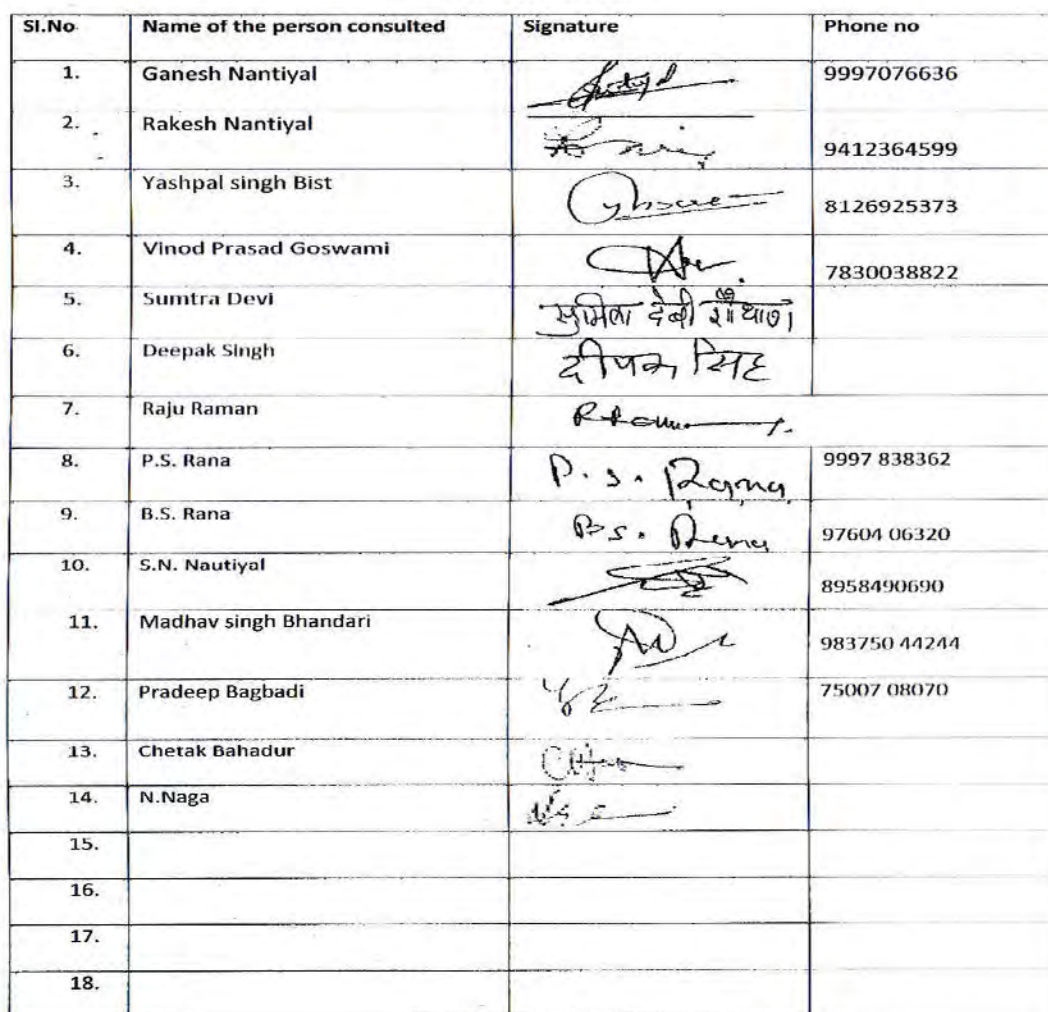 Sl.No Name of the person consulted Signature Phone no
1. Ganesh Nantiyal 9997076636
2. Rakesh Nantiyal 9412364599
3. Yashpal singh Bist 8126925373
4. Vinod Prasad Goswami 7830038822
5. Sumtra Devi सुमित्रा देवी
6. Deepak Singh दीपक सिंह
7. Raju Raman
8. P.S. Rana P.S. Rana 9997 838362
9. B.S. Rana B.S. Rana 97604 06320
10. S.N. Nautiyal 8958490690
11. Madhav singh Bhandari 983750 44244
12. Pradeep Bagbadi 75007 08070
13. Chetak Bahadur
14. N.Naga
15.
16.
17.
18.